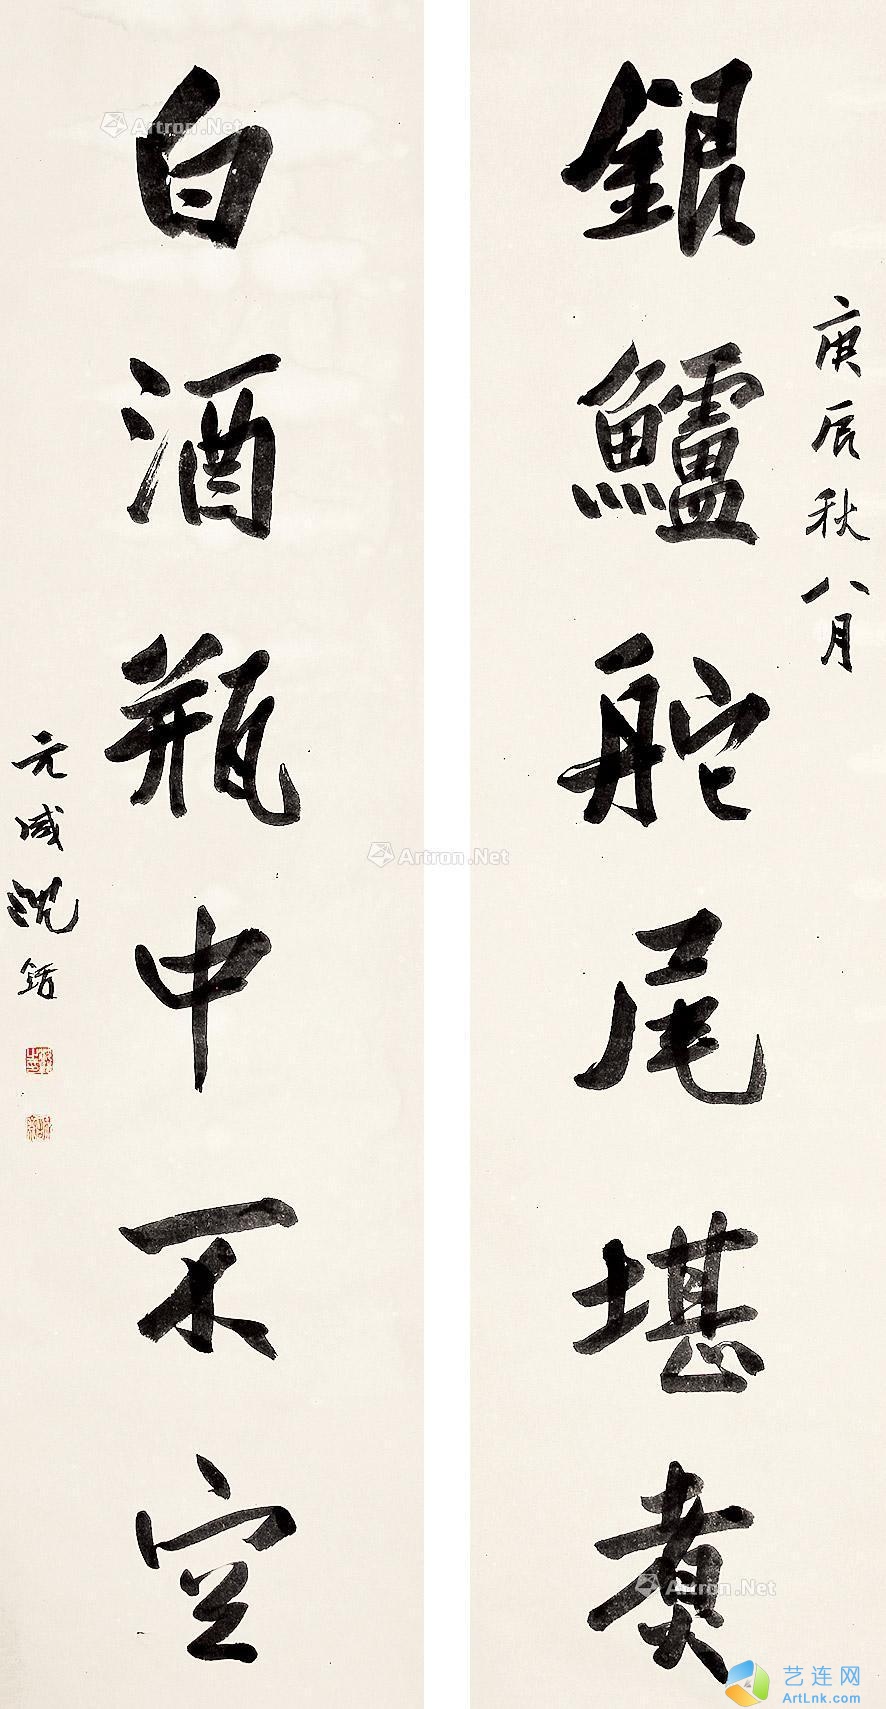 庚辰秋八月
銀鱸舵尾堪煑
白酒瓶中不空
元咸沈銛
Artron.Net
Artron.Net
Artron.Net
艺连网
ArtLnk.com